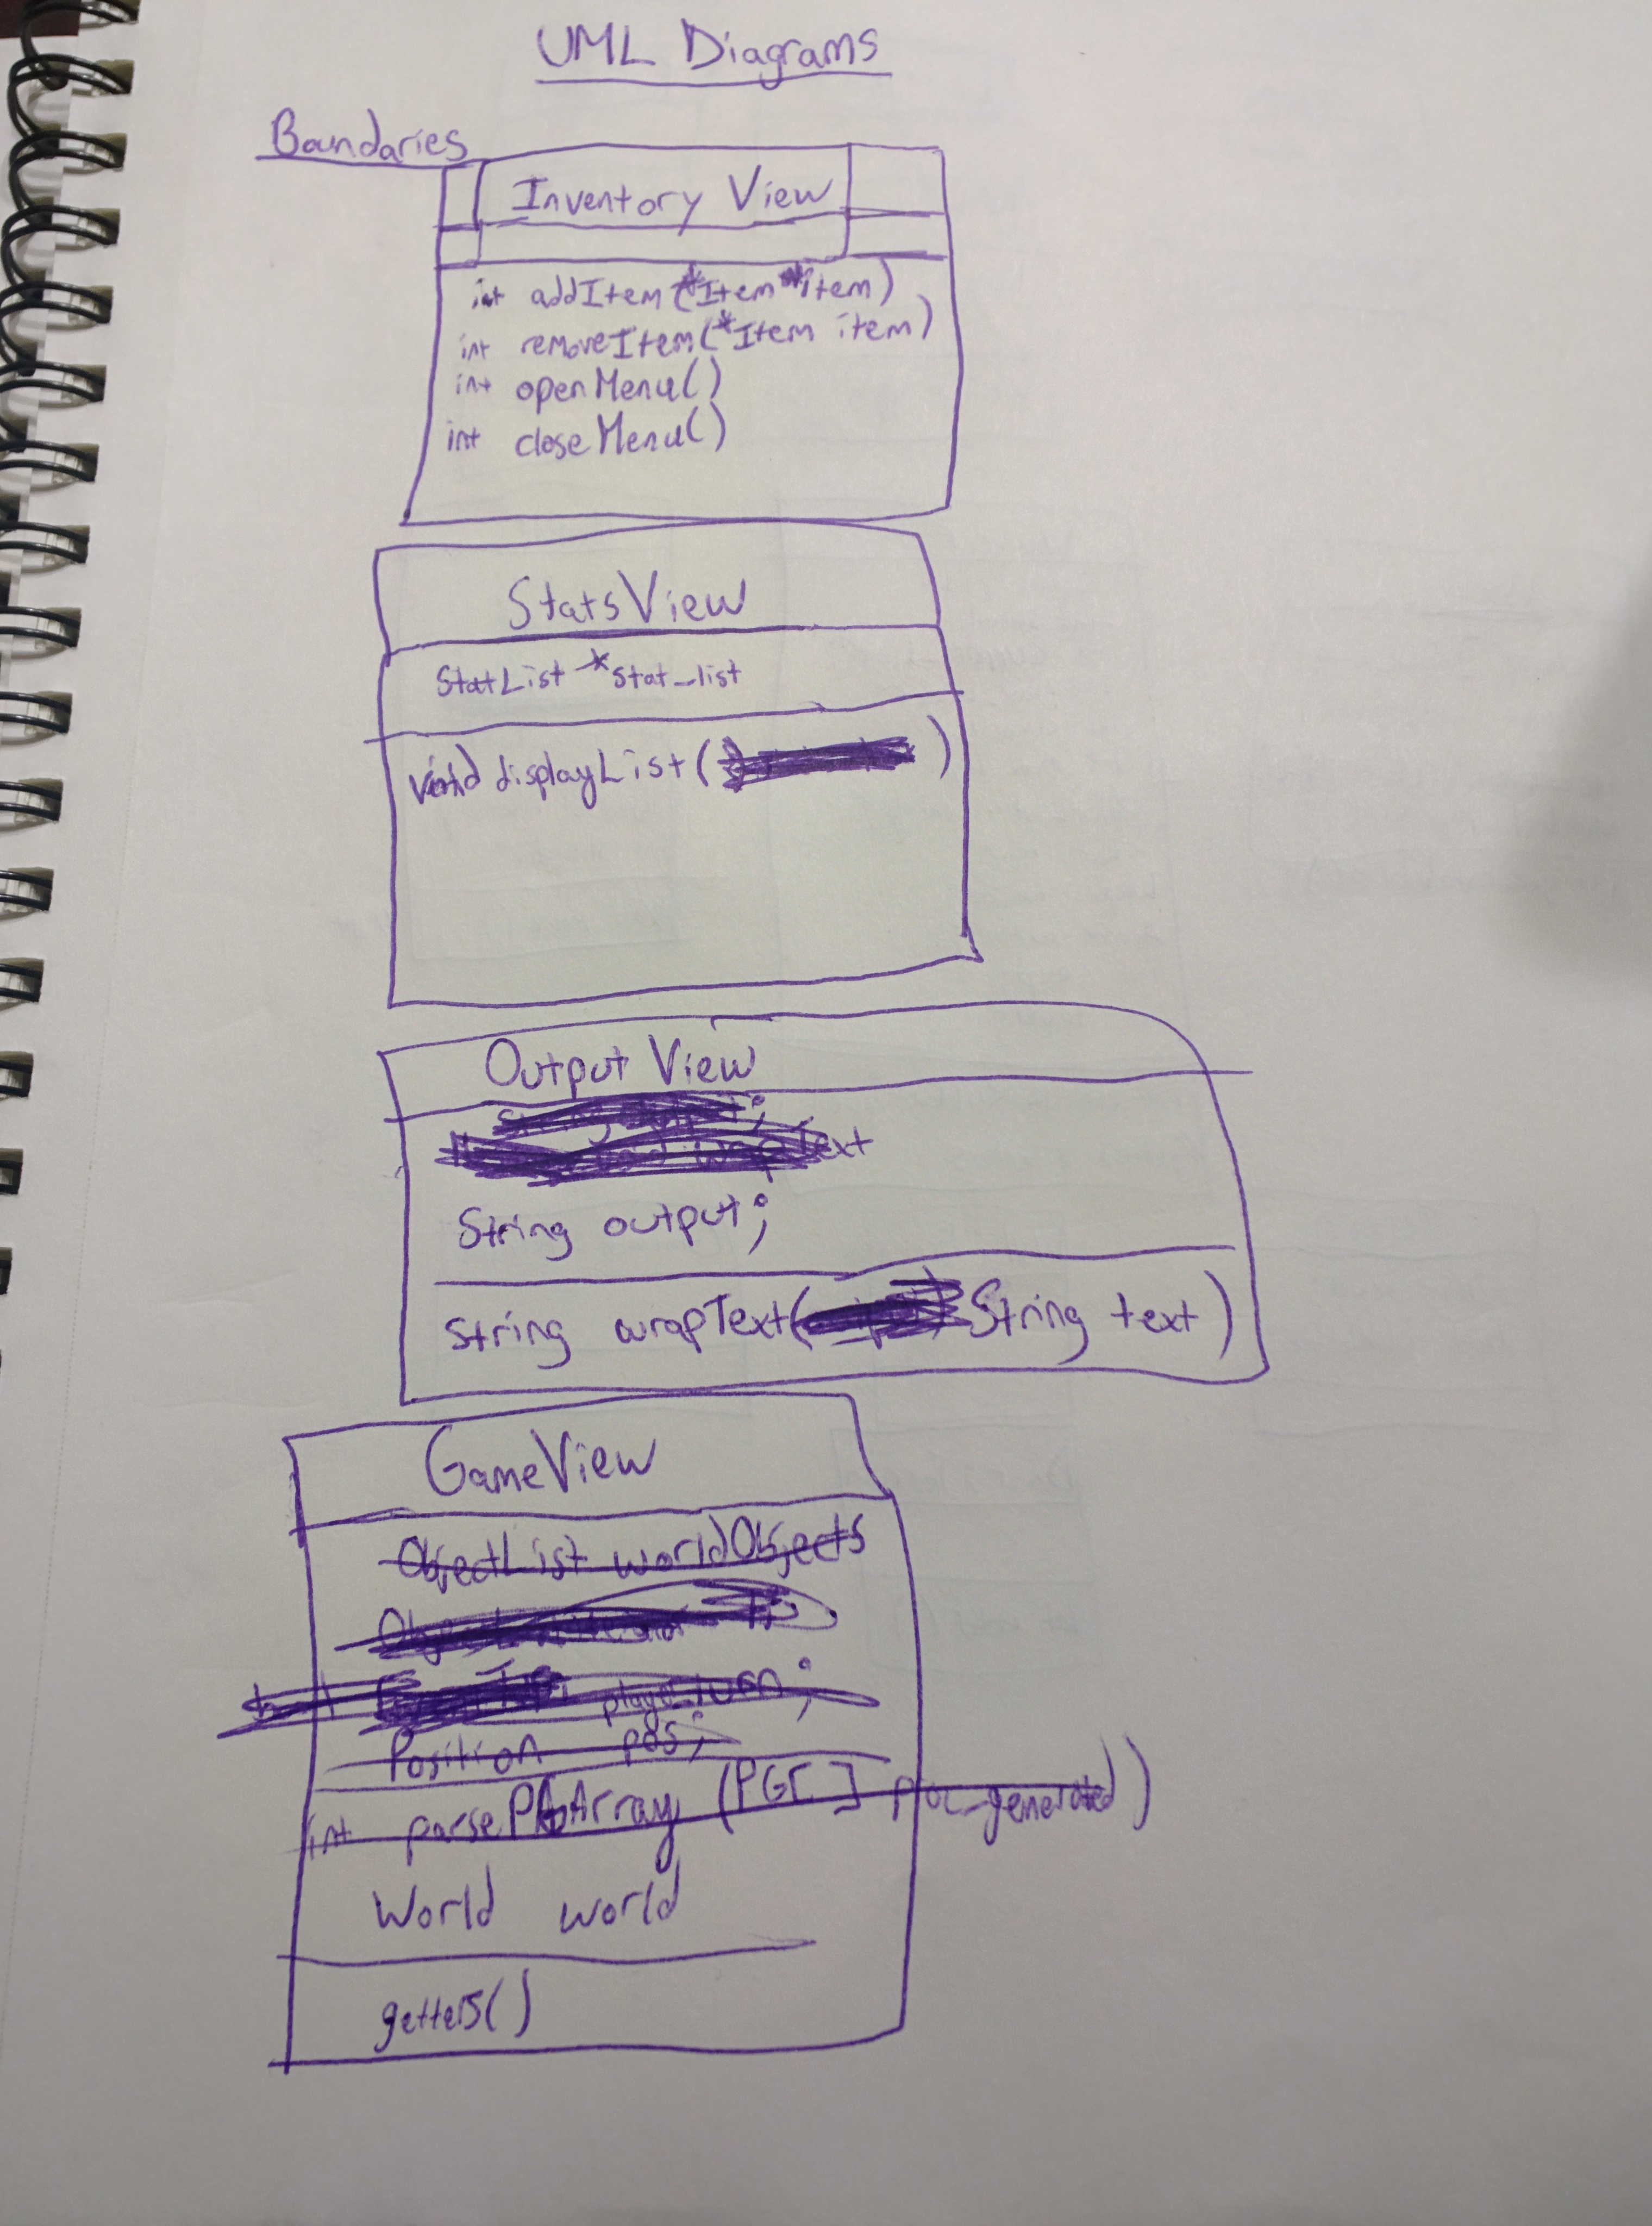 UML Diagrams
Boundaries
Inventory View
int addItem(*Item item)
int removeItem(*Item item)
int openMenu()
int closeMenu()
StatsView
StatList *stat_list
void displayList( )
Output View
String output;
String wrapText( String text)
GameView
ObjectList worldObjects
player_turn;
Position pos;
int parsePGArray (PGC[] proc_generated)
World world
getters()